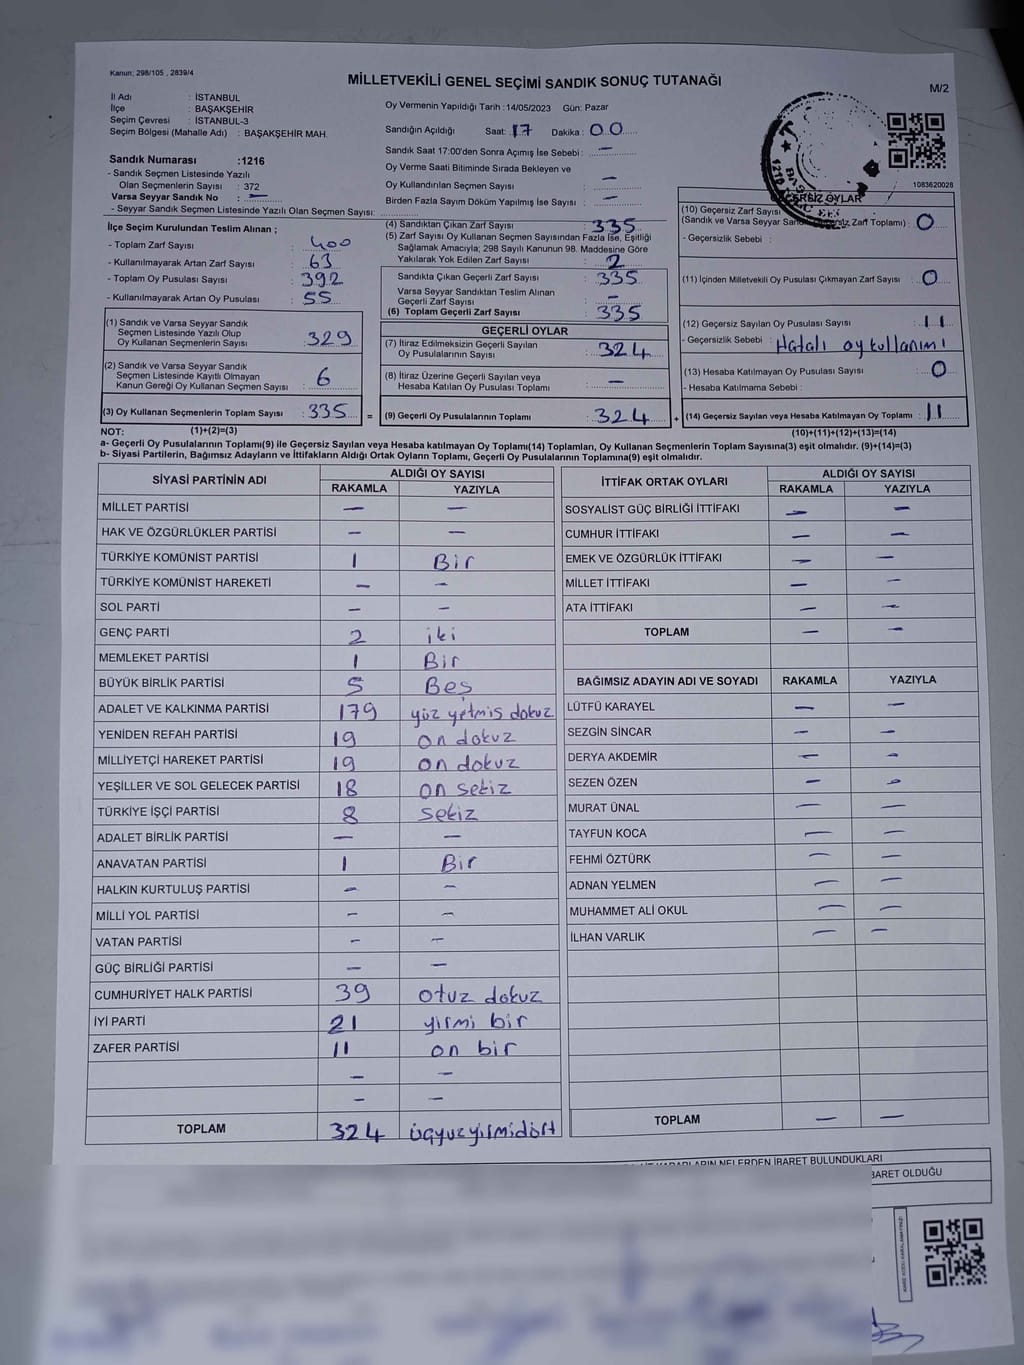 Kanun: 298/105 , 2839/4
MİLLETVEKİLİ GENEL SEÇİMİ SANDIK SONUÇ TUTANAĞI
M/2
İl Adı : İSTANBUL
İlçe : BAŞAKŞEHİR
Seçim Çevresi : İSTANBUL-3
Seçim Bölgesi (Mahalle Adı) : BAŞAKŞEHİR MAH.
Sandık Numarası :1216
- Sandık Seçmen Listesinde Yazılı
Olan Seçmenlerin Sayısı : 372
Varsa Seyyar Sandık No : —
- Seyyar Sandık Seçmen Listesinde Yazılı Olan Seçmen Sayısı:
Oy Vermenin Yapıldığı Tarih : 14/05/2023 Gün: Pazar
Sandığın Açıldığı Saat: 17 Dakika : 00
Sandık Saat 17:00'den Sonra Açımış İse Sebebi : —
Oy Verme Saati Bitiminde Sırada Bekleyen ve
Oy Kullandırılan Seçmen Sayısı : —
Birden Fazla Sayım Döküm Yapılmış İse Sayısı : —
1083620028
İlçe Seçim Kurulundan Teslim Alınan ;
- Toplam Zarf Sayısı : 400
- Kullanılmayarak Artan Zarf Sayısı : 63
- Toplam Oy Pusulası Sayısı : 392
- Kullanılmayarak Artan Oy Pusulası : 55
(1) Sandık ve Varsa Seyyar Sandık
Seçmen Listesinde Yazılı Olup
Oy Kullanan Seçmenlerin Sayısı : 329
(2) Sandık ve Varsa Seyyar Sandık
Seçmen Listesinde Kayıtlı Olmayan
Kanun Gereği Oy Kullanan Seçmen Sayısı : 6
(3) Oy Kullanan Seçmenlerin Toplam Sayısı : 335 =
(4) Sandıktan Çıkan Zarf Sayısı : 335
(5) Zarf Sayısı Oy Kullanan Seçmen Sayısından Fazla İse, Eşitliği
Sağlamak Amacıyla; 298 Sayılı Kanunun 98. Maddesine Göre
Yakılarak Yok Edilen Zarf Sayısı : 2
Sandıkta Çıkan Geçerli Zarf Sayısı : 335
Varsa Seyyar Sandıktan Teslim Alınan
Geçerli Zarf Sayısı : —
(6) Toplam Geçerli Zarf Sayısı : 335
GEÇERLİ OYLAR
(7) İtiraz Edilmeksizin Geçerli Sayılan
Oy Pusulalarının Sayısı : 324
(8) İtiraz Üzerine Geçerli Sayılan veya
Hesaba Katılan Oy Pusulası Toplamı : —
(9) Geçerli Oy Pusulalarının Toplamı : 324 +
GEÇERSİZ OYLAR
(10) Geçersiz Zarf Sayısı
(Sandık ve Varsa Seyyar Zarf Toplamı) : 0
- Geçersizlik Sebebi :
(11) İçinden Milletvekili Oy Pusulası Çıkmayan Zarf Sayısı : 0
(12) Geçersiz Sayılan Oy Pusulası Sayısı : 11
- Geçersizlik Sebebi : Hatalı oy kullanımı
(13) Hesaba Katılmayan Oy Pusulası Sayısı : 0
- Hesaba Katılmama Sebebi :
(14) Geçersiz Sayılan veya Hesaba Katılmayan Oy Toplamı : 11
NOT: (1)+(2)=(3) (10)+(11)+(12)+(13)=(14)
a- Geçerli Oy Pusulalarının Toplamı(9) ile Geçersiz Sayılan veya Hesaba katılmayan Oy Toplamı(14) Toplamları, Oy Kullanan Seçmenlerin Toplam Sayısına(3) eşit olmalıdır. (9)+(14)=(3)
b- Siyasi Partilerin, Bağımsız Adayların ve İttifakların Aldığı Ortak Oyların Toplamı, Geçerli Oy Pusulalarının Toplamına(9) eşit olmalıdır.
SİYASİ PARTİNİN ADI ALDIĞI OY SAYISI
RAKAMLA YAZIYLA
MİLLET PARTİSİ — —
HAK VE ÖZGÜRLÜKLER PARTİSİ — —
TÜRKİYE KOMÜNİST PARTİSİ 1 Bir
TÜRKİYE KOMÜNİST HAREKETİ — —
SOL PARTİ — —
GENÇ PARTİ 2 iki
MEMLEKET PARTİSİ 1 Bir
BÜYÜK BİRLİK PARTİSİ 5 Beş
ADALET VE KALKINMA PARTİSİ 179 yüz yetmiş dokuz
YENİDEN REFAH PARTİSİ 19 on dokuz
MİLLİYETÇİ HAREKET PARTİSİ 19 on dokuz
YEŞİLLER VE SOL GELECEK PARTİSİ 18 on sekiz
TÜRKİYE İŞÇİ PARTİSİ 8 sekiz
ADALET BİRLİK PARTİSİ — —
ANAVATAN PARTİSİ 1 Bir
HALKIN KURTULUŞ PARTİSİ — —
MİLLİ YOL PARTİSİ — —
VATAN PARTİSİ — —
GÜÇ BİRLİĞİ PARTİSİ — —
CUMHURİYET HALK PARTİSİ 39 otuz dokuz
İYİ PARTİ 21 yirmi bir
ZAFER PARTİSİ 11 on bir
— —
— —
TOPLAM 324 üçyuzyirmidört
İTTİFAK ORTAK OYLARI ALDIĞI OY SAYISI
RAKAMLA YAZIYLA
SOSYALİST GÜÇ BİRLİĞİ İTTİFAKI — —
CUMHUR İTTİFAKI — —
EMEK VE ÖZGÜRLÜK İTTİFAKI — —
MİLLET İTTİFAKI — —
ATA İTTİFAKI — —
TOPLAM — —
BAĞIMSIZ ADAYIN ADI VE SOYADI RAKAMLA YAZIYLA
LÜTFÜ KARAYEL — —
SEZGİN SİNCAR — —
DERYA AKDEMİR — —
SEZEN ÖZEN — —
MURAT ÜNAL — —
TAYFUN KOCA — —
FEHMİ ÖZTÜRK — —
ADNAN YELMEN — —
MUHAMMET ALİ OKUL — —
İLHAN VARLIK — —
TOPLAM — —
NELERDEN İBARET BULUNDUKLARI
BARET OLDUĞU